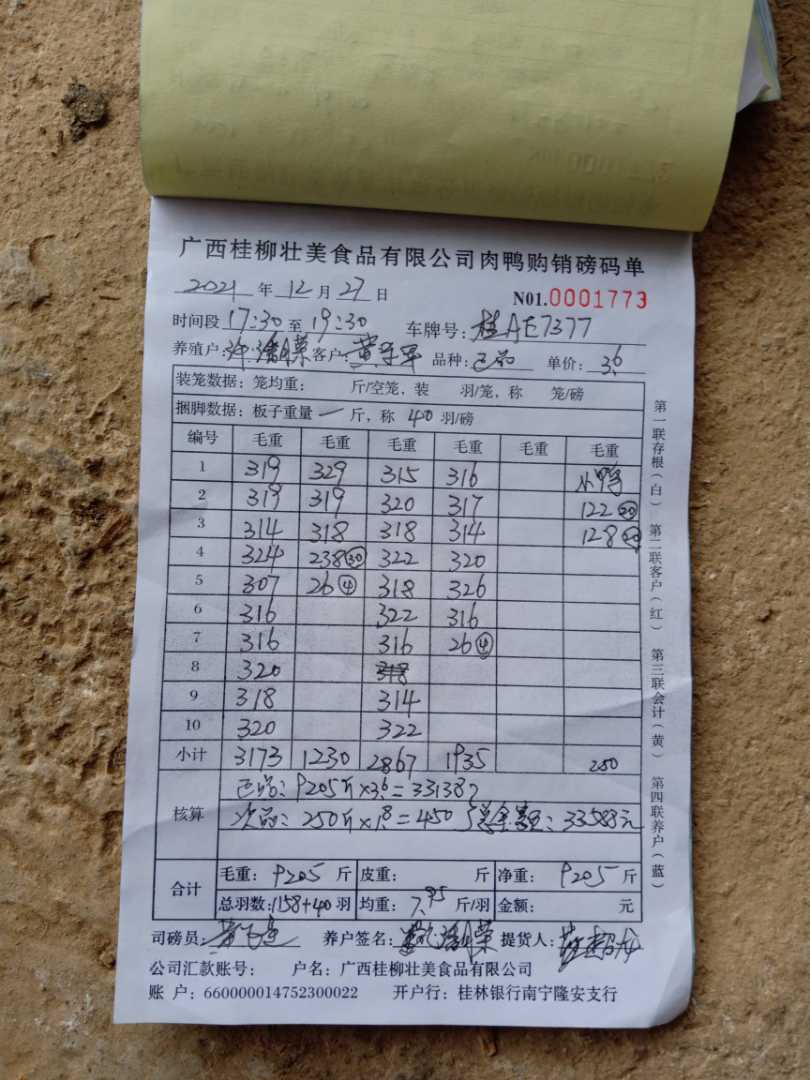 广西桂柳壮美食品有限公司肉鸭购销磅码单
2021 年 12 月 27 日 N01.0001773
时间段 17:30 至 19:30 车牌号: 桂AE7377
养殖户: 客户: 品种: 正品 单价: 3.6
装笼数据: 笼均重: 斤/空笼, 装 羽/笼, 称 笼/磅
捆脚数据: 板子重量 一 斤, 称 40 羽/磅
编号 毛重 毛重 毛重 毛重 毛重 毛重
1 319 329 315 316 小鸭
2 319 319 320 317 122 20
3 314 318 318 314 128 20
4 324 238 30 322 320
5 307 26 4 318 326
6 316 322 316
7 316 316 26 4
8 320 318
9 318 314
10 320 322
小计 3173 1230 2867 1935 250
核算 正品: 9205斤×3.6=33138
次品: 250斤×1.8=450 总金额: 33588元
合计 毛重: 9205 斤 皮重: 斤 净重: 9205 斤
总羽数: 1158+40 羽 均重: 7.95 斤/羽 金额: 元
司磅员: 养户签名: 提货人:
公司汇款账号: 户名: 广西桂柳壮美食品有限公司
账 户: 660000014752300022 开户行: 桂林银行南宁隆安支行
第一联存根(白) 第二联客户(红) 第三联会计(黄) 第四联养户(蓝)